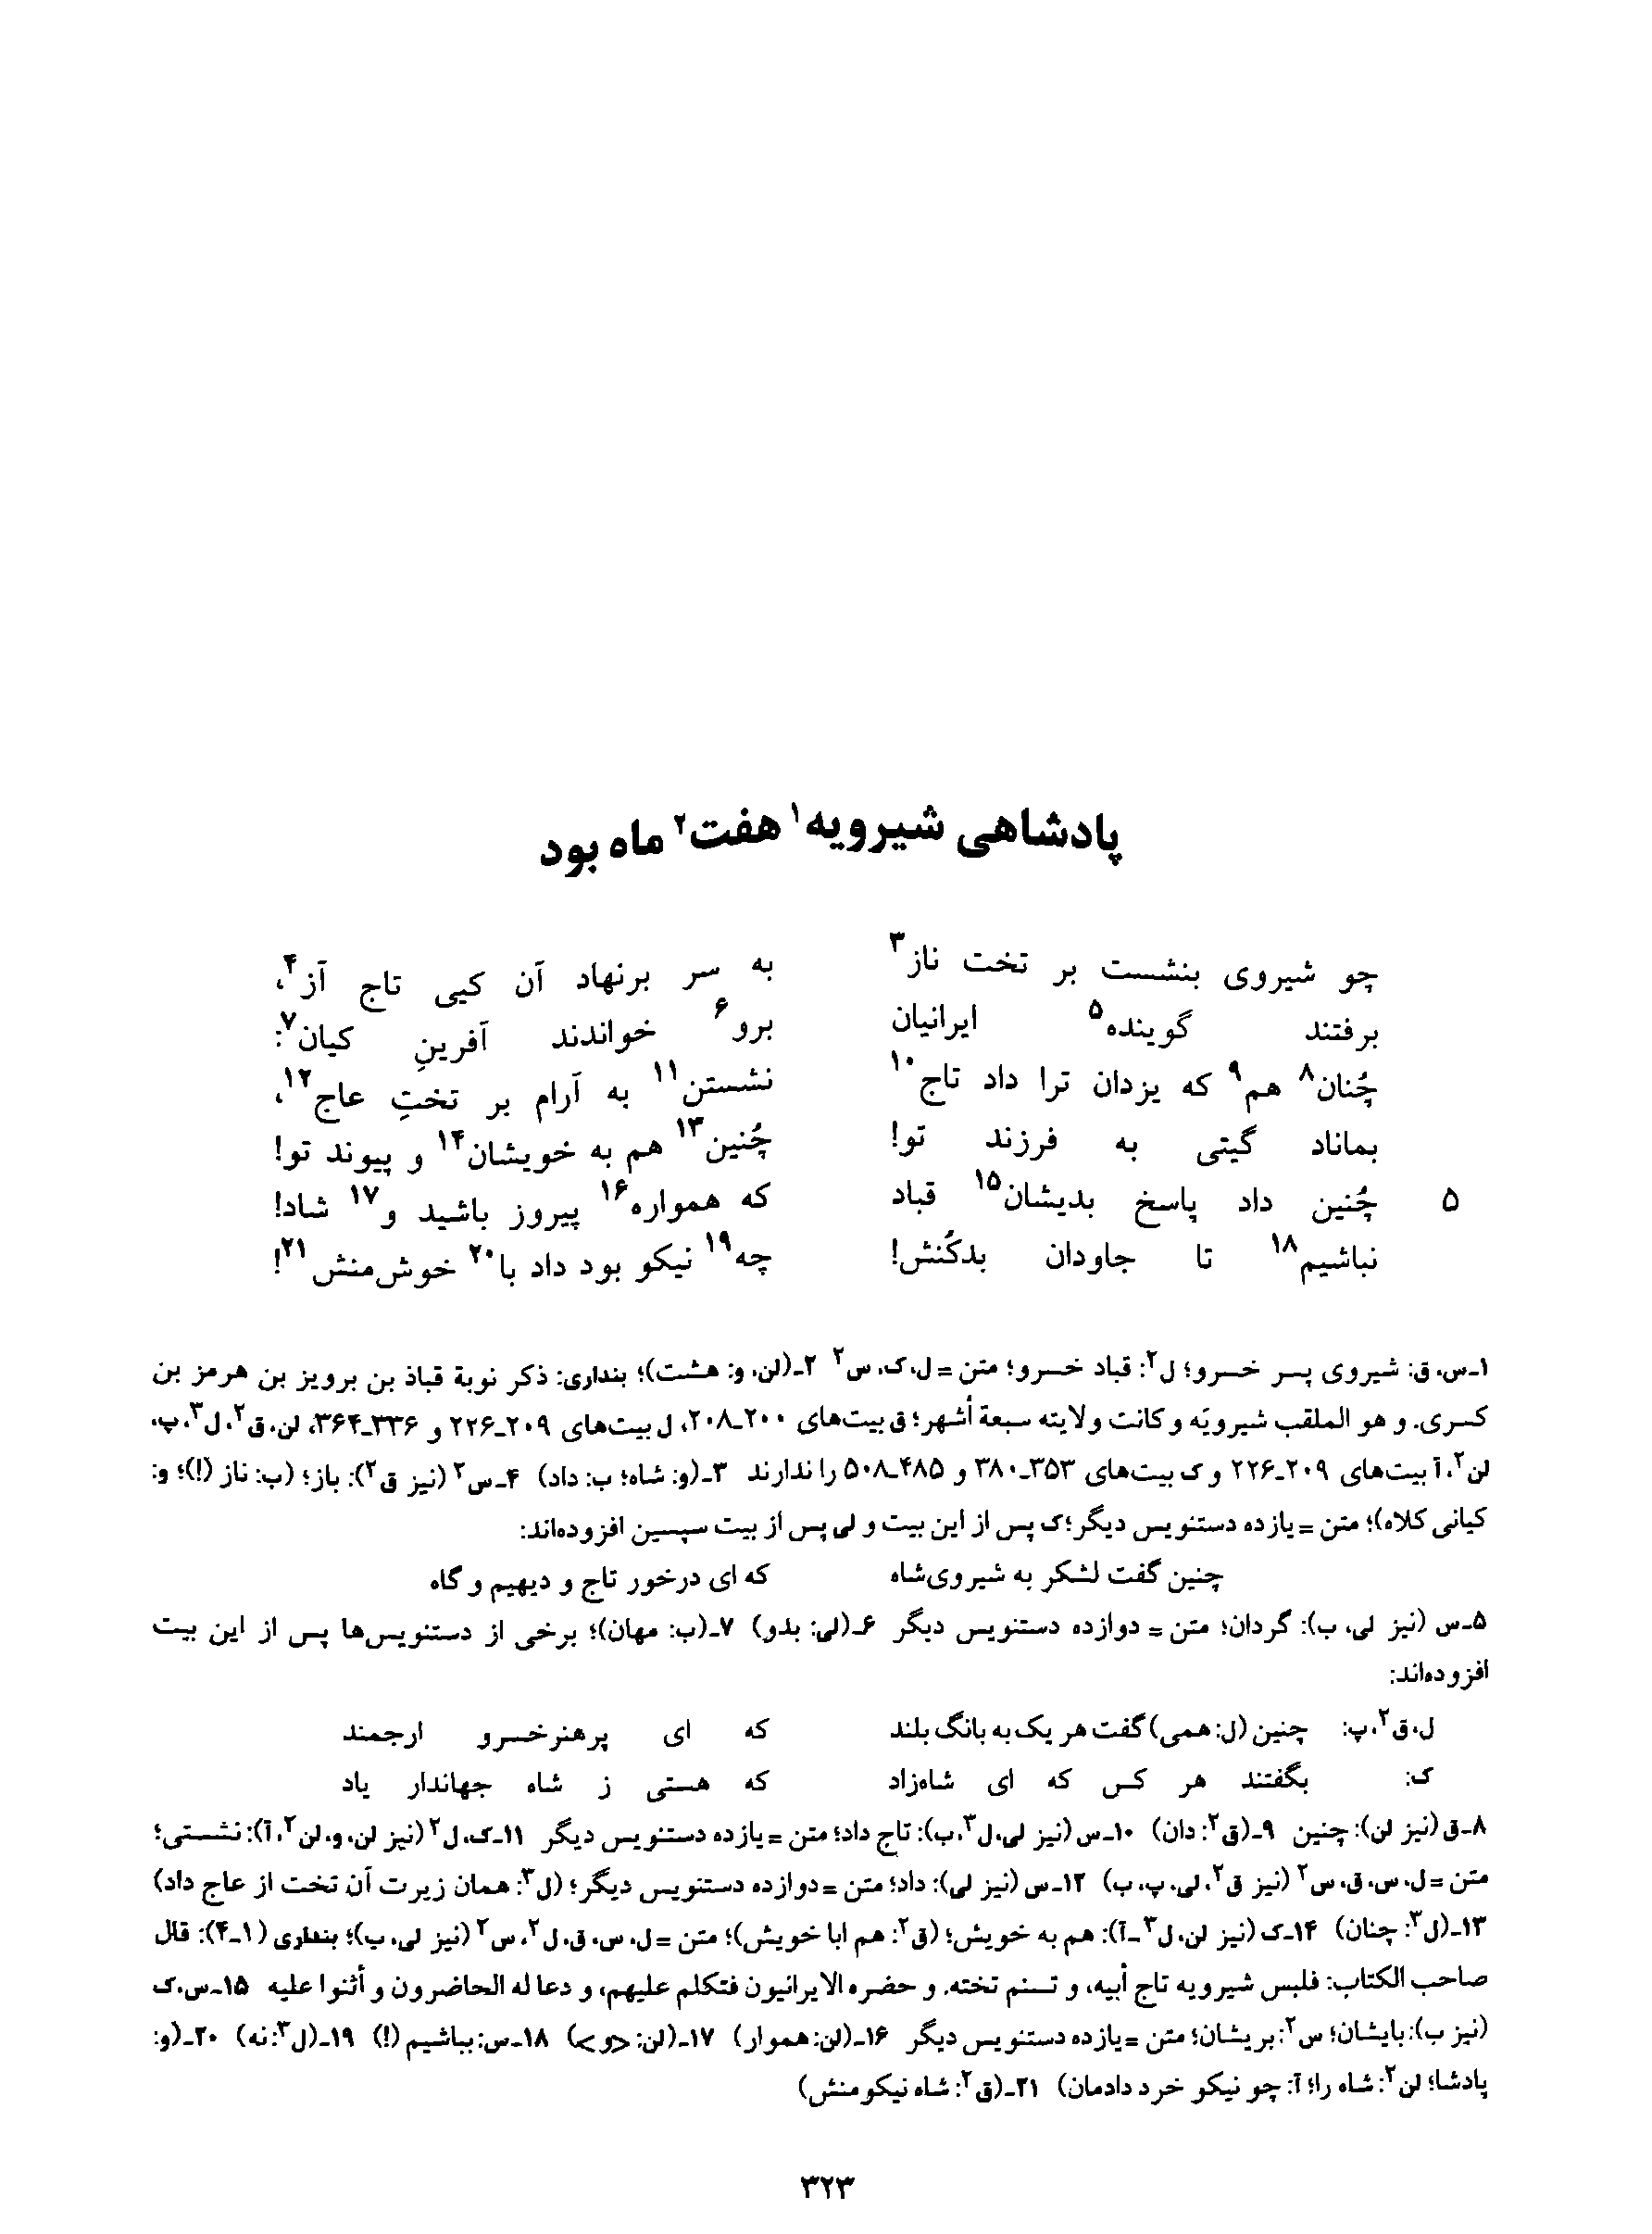 پادشاهی شیرویه۱ هفت۲ ماه بود
چو شیروی بنشست بر تخت ناز۳ به سر برنهاد آن کیی تاج آز۴،
برفتند گوینده۵ ایرانیان برو۶ خواندند آفرینِ کیان۷:
چُنان۸ هم۹ که یزدان ترا داد تاج۱۰ نشستن۱۱ به آرام بر تختِ عاج۱۲،
بماناد گیتی به فرزند تو! چُنین۱۳ هم به خویشان۱۴ و پیوند تو!
۵ چُنین داد پاسخ بدیشان۱۵ قباد که همواره۱۶ پیروز باشید و۱۷ شاد!
نباشیم۱۸ تا جاودان بدکُنش! چه۱۹ نیکو بود داد با۲۰ خوش‌منش۲۱!
۱ـ س، ق: شیروی پسر خسرو؛ ل۲: قباد خسرو؛ متن = ل، ک، س۲ ۲ـ (لن، و: هشت)؛ بنداری: ذکر نوبة قباذ بن برویز بن هرمز بن
کسری. و هو الملقب شیرویَه و کانت ولایته سبعة أشهر؛ ق بیت‌های ۲۰۰ـ۲۰۸، ل بیت‌های ۲۰۹ـ۲۲۶ و ۳۳۶ـ۳۶۴، لن، ق۲، ل۳، پ،
لن۲، آ بیت‌های ۲۰۹ـ۲۲۶ و ک بیت‌های ۳۵۳ـ۳۸۰ و ۴۸۵ـ۵۰۸ را ندارند ۳ـ (و: شاه؛ ب: داد) ۴ـ س۲ (نیز ق۲): باز؛ (ب: ناز (!)؛ و:
کیانی کلاه)؛ متن = یازده دستنویس دیگر؛ ک پس از این بیت و لی پس از بیت سپسین افزوده‌اند:
چنین گفت لشکر به شیروی‌شاه که ای درخور تاج و دیهیم و گاه
۵ـ س (نیز لی، ب): گردان؛ متن = دوازده دستنویس دیگر ۶ـ (لی: بدو) ۷ـ (ب: مهان)؛ برخی از دستنویس‌ها پس از این بیت
افزوده‌اند:
ل، ق۲، پ: چنین (ل: همی) گفت هر یک به بانگ بلند که ای پرهنر خسرو ارجمند
ک: بگفتند هر کس که ای شاه‌زاد که هستی ز شاه جهاندار یاد
۸ـ ق (نیز لن): چنین ۹ـ (ق۲: دان) ۱۰ـ س (نیز لی، ل۳، ب): تاج داد؛ متن = یازده دستنویس دیگر ۱۱ـ ک، ل۲ (نیز لن، و، لن۲، آ): نشستی؛
متن = ل، س، ق، س۲ (نیز ق۲، لی، پ، ب) ۱۲ـ س (نیز لی): داد؛ متن = دوازده دستنویس دیگر؛ (ل۳: همان زیرت آن تخت از عاج داد)
۱۳ـ (ل۳: چنان) ۱۴ـ ک (نیز لن، ل۳ـآ): هم به خویش؛ (ق۲: هم ابا خویش)؛ متن = ل، س، ق، ل۲، س۲ (نیز لی، ب)؛ بنداری (۱ـ۴): قال
صاحب الکتاب: فلبس شیرویه تاج أبیه، و تسنم تخته. و حضره الایرانیون فتکلم علیهم، و دعا له الحاضرون و أثنوا علیه ۱۵ـ س، ک
(نیز ب): بایشان؛ س۲: بریشان؛ متن = یازده دستنویس دیگر ۱۶ـ (لن: هموار) ۱۷ـ (لن: <و>) ۱۸ـ س: بباشیم (!) ۱۹ـ (ل۳: نه) ۲۰ـ (و:
پادشا؛ لن۲: شاه را؛ آ: چو نیکو خرد دادمان) ۲۱ـ (ق۲: شاه نیکومنش)
۳۲۳